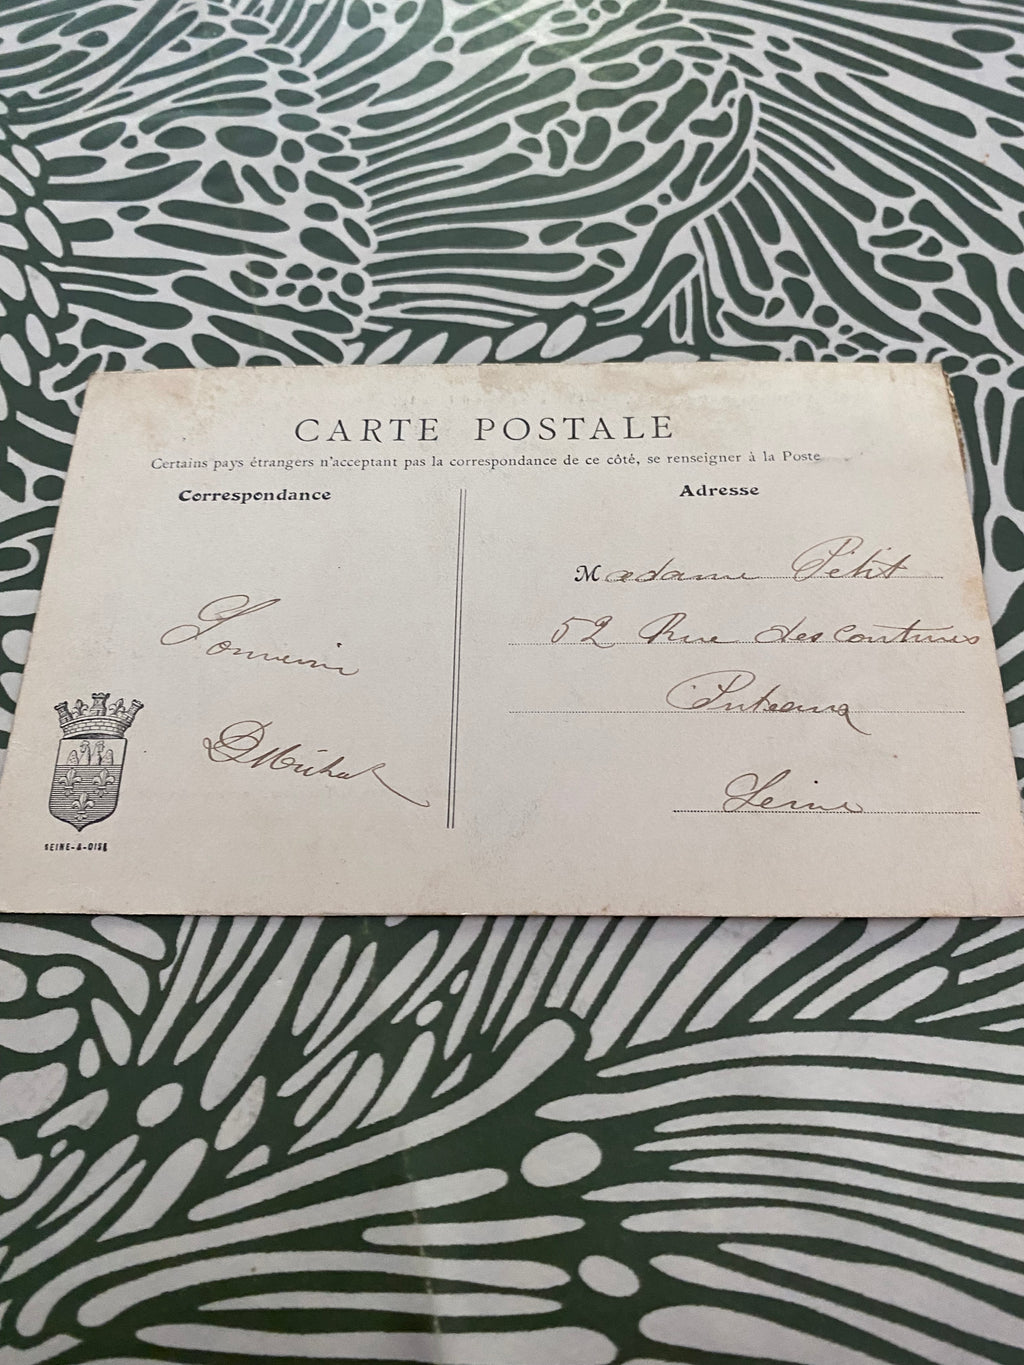 CARTE POSTALE
Certains pays étrangers n'acceptant pas la correspondance de ce côté, se renseigner à la Poste
Correspondance
Adresse
Madame Petit
52 Rue des Coutures
Puteaux
Seine
Souvenir
SEINE-&-OISE